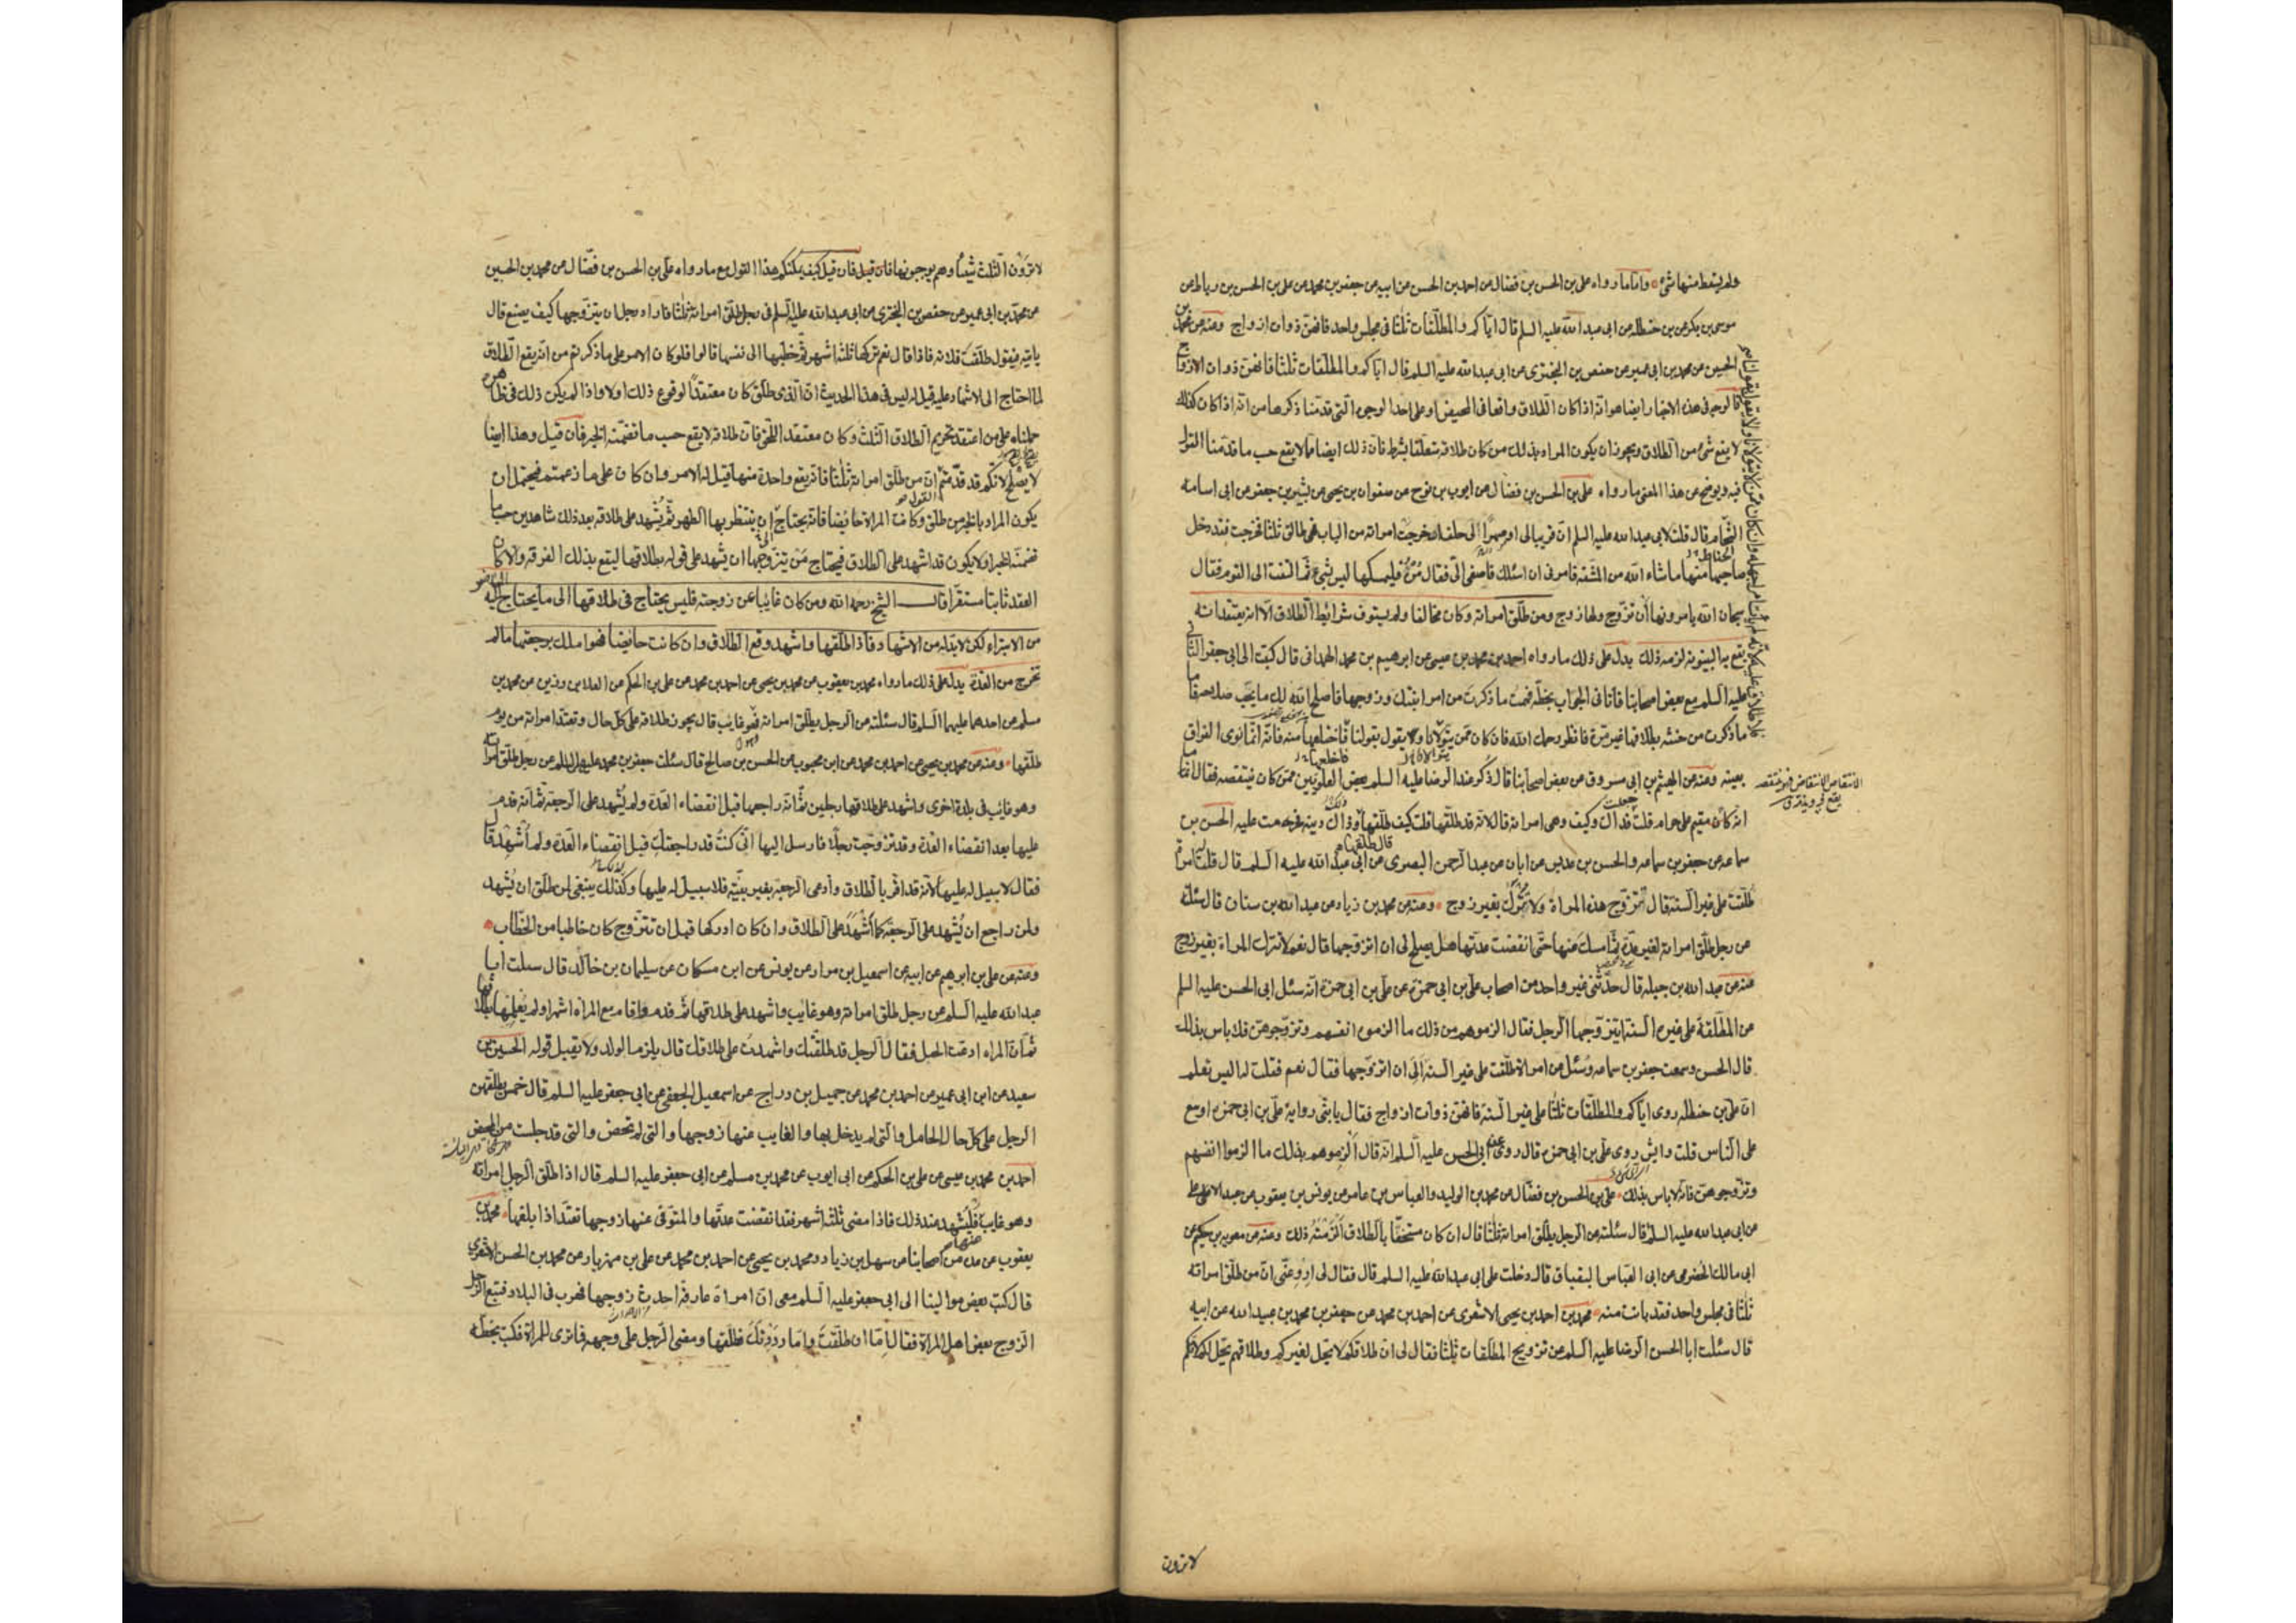 ولم يسقط منها شيء واما ما رواه علي بن الحسن بن فضال عن احمد بن الحسن عن ابيه عن جعفر بن محمد عن علي بن الحسن بن رباط عن
موسى بن بكر عن بن حنظله عن ابي عبد الله عليه السلم قال اياكم والمطلقات ثلثا في مجلس واحد فانهن ذوات ازواج وعنه عن محمد بن
الحسن عن محمد بن ابي عمير عن حفص بن البختري عن ابي عبد الله عليه السلم قال اياكم والمطلقات ثلثا فانهن ذوات الازواج
فالوجه في هذه الاخبار ايضا هو انه اذا كان الطلاق واقعا في الحيض او على احد الوجوه التي قدمنا ذكرها من انه اذا كان كذلك
لا يقع شيء من الطلاق ويجوز ان يكون المراد بذلك من كان طلاقه متعلقا بشرط فان ذلك ايضا مما لا يقع حسب ما قدمنا القول
فيه ويوضح عن هذا المعنى ما رواه علي بن الحسن بن فضال عن ايوب بن نوح عن صفوان بن يحيى عن بشير بن جعفر عن ابي اسامه
الشحام قال قلت لابي عبد الله عليه السلم ان قريبا لي او صهرا لي حلف ان خرجت امراته من الباب فهي طالق ثلثا فخرجت فقد دخل
صاحبها منها ما شاء الله من المشقه فامرني ان اسئلك فاصغى الي فقال مره فليمسكها ليس بشيء ثم التفت الى القوم فقال
سبحان الله يامرونها ان تزوج ولها زوج ومن طلق امراته وكان مخالفا ولم يستوف شرائط الطلاق الا انه يعتقد انه
يقع به البينونة لزمه ذلك يدل على ذلك ما رواه احمد بن محمد بن عيسى عن ابرهيم بن محمد الهمداني قال كتبت الى ابي جعفر الثاني
عليه السلم مع بعض اصحابنا فاتاني الجواب بخطه فهمت ما ذكرت من امر ابنتك وزوجها فاصلح الله لك ما يحب صلاحه فاما
ما ذكرت من حنثه بطلاقها غير مرة فانظر رحمك الله فان كان ممن يتولانا ولا يقول بقولنا فاختلعها منه فانه انما نوى الفراق
بعينه وعنه عن الهيثم بن ابي مسروق عن بعض اصحابنا قال ذكر عند الرضا عليه السلم بعض العلويين ممن كان ينتقصه فقال اما
انه كان مقيم على حرام قلت جعلت فداك وكيف وهي امراته قال لانه قد طلقها قلت كيف طلقها قال طلقها وذاك دينه فحرمت عليه الحسن بن
سماعه عن جعفر بن سماعه والحسن بن عديس عن ابان عن عبد الرحمن البصري عن ابي عبد الله عليه السلم قال قلت له امراة
طلقت على غير السنة قال تتزوج هذه المراة ولا تترك بغير زوج وعنه عن محمد بن زياد عن عبد الله بن سنان قال سئلته
عن رجل طلق امراته لغير عدة ثم امسك عنها حتى انقضت عدتها هل يصلح لي ان اتزوجها قال نعم لا تترك المراة بغير زوج
عنه عن عبد الله بن جبله قال حدثني غير واحد من اصحاب علي بن ابي حمزة عن علي بن ابي حمزة انه سئل ابي الحسن عليه السلم
عن المطلقة على غير السنة ايتزوجها الرجل فقال الزموهم من ذلك ما الزموه انفسهم وتزوجوهن فلا باس بذلك
قال الحسن وسمعت جعفر بن سماعه وسئل عن امراة طلقت على غير السنة الى ان اتزوجها فقال نعم فقلت له اليس تعلم
ان علي بن حنظله روى اياكم والمطلقات ثلثا على غير السنة فانهن ذوات ازواج فقال يا بني رواية علي بن ابي حمزه اوسع
على الناس قلت وايش روى علي بن ابي حمزه قال روى عن ابي الحسن عليه السلم انه قال الزموهم بذلك ما الزموا انفسهم
وتزوجوهن فانه لا باس بذلك علي بن الحسن بن فضال عن محمد بن الوليد والعباس بن عامر عن يونس بن يعقوب عن عبد الاعلى
عن ابي عبد الله عليه السلم قال سئلته عن الرجل يطلق امراته ثلثا قال ان كان مستخفا بالطلاق الزمته ذلك وعنه عن معويه بن حكيم عن
ابي مالك الحضرمي عن ابي العباس البقباق قال دخلت على ابي عبد الله عليه السلم قال فقال لي ارو عني ان من طلق امراته
ثلثا في مجلس واحد فقد بانت منه محمد بن احمد بن يحيى الاشعري عن احمد بن محمد عن جعفر بن محمد بن عبيد الله عن ابيه
قال سئلت ابا الحسن الرضا عليه السلم عن تزويج المطلقات ثلثا فقال لي ان طلاقكم لا يحل لغيركم وطلاقهم يحل لكم لانكم
لا ترون
لا ترون الثلث شيئا وهم يوجبونها فان قيل فان قيل كيف يمكنكم هذا القول مع ما رواه علي بن الحسن بن فضال عن محمد بن الحسين
عن محمد بن ابي عمير عن حفص بن البختري عن ابي عبد الله عليه السلم في رجل طلق امراته ثلثا فاراد رجل ان يتزوجها كيف يصنع قال
ياتيه فيقول طلقت فلانه فاذا قال نعم تركها ثلثة اشهر ثم خطبها الى نفسها قالوا فلو كان الامر على ما ذكرتم من انه يقع الطلاق
لما احتاج الى الاشهاد عليه قيل له ليس في هذا الحديث ان الذي طلق كان معتقدا لوقوع ذلك اولا واذا لم يكن ذلك في ظاهره
حملناه على من اعتقد تحريم الطلاق الثلث وكان معتقد اللحق فان طلاقه لا يقع حسب ما تضمنه الخبر فان قيل وهذا ايضا
لا يصلح لانكم قد قدمتم ان من طلق امراته ثلثا فانه يقع واحدة منها قيل له الامر وان كان على ما زعمتم فيحتمل ان
يكون المراد بالخبر من طلق وكانت المراة حايضا فانه يحتاج ان ينتظر بها الطهر ثم يشهد على طلاقه بعد ذلك شاهدين حسب ما
تضمنه الخبر او لا يكون قد اشهد على الطلاق فيحتاج من يتزوجها ان يشهد على قوله بطلاقها ليقع بذلك الفرقه والا كان
العقد ثابتا مستقرا قال الشيخ رحمه الله ومن كان غايبا عن زوجته فليس يحتاج في طلاقها الى ما يحتاج اليه
من الاستبراء لكن لا بد له من الاشهاد فاذا طلقها واشهد وقع الطلاق وان كانت حايضا فهو املك برجعتها ما لم
تخرج من العدة يدل على ذلك ما رواه محمد بن يعقوب عن محمد بن يحيى عن احمد بن محمد عن علي بن الحكم عن العلا بن رزين عن محمد بن
مسلم عن احدهما عليهما السلم قال سئلته عن الرجل يطلق امراته وهو غايب قال يجوز طلاقه على كل حال وتعتد امراته من يوم
طلقها وعنه عن محمد بن يحيى عن احمد بن محمد عن ابن محبوب عن الحسن بن صالح قال سئلت جعفر بن محمد عليهما السلم عن رجل طلق امراته
وهو غايب في بلدة اخرى واشهد على طلاقها رجلين ثم انه راجعها قبل انقضاء العدة ولم يشهد على الرجعة ثم انه قدم
عليها بعد انقضاء العدة وقد تزوجت رجلا فارسل اليها اني كنت قد راجعتك قبل انقضاء العدة ولم اشهد قال
فقال لا سبيل له عليها لانه قد اقر بالطلاق وادعى الرجعة بغير بينة فلا سبيل له عليها وكذلك ينبغي لمن طلق ان يشهد
ولمن راجع ان يشهد على الرجعة كما اشهد على الطلاق وان كان ادركها قبل ان تتزوج كان خاطبا من الخطاب
وعنه عن علي بن ابرهيم عن ابيه عن اسمعيل بن مرار عن يونس عن ابن مسكان عن سليمان بن خالد قال سئلت ابا
عبد الله عليه السلم عن رجل طلق امراته وهو غايب واشهد على طلاقها ثم قدم واقام مع المراة اشهرا ولم يعلمها بطلاقها
ثم ان المراه ادعت الحبل فقال الرجل قد طلقتك واشهدت على طلاقك قال يلزمه الولد ولا يقبل قوله الحسين بن
سعيد عن ابن ابي عمير عن احمد بن محمد عن جميل بن دراج عن اسمعيل الجعفي عن ابي جعفر عليه السلم قال خمس يطلقهن
الرجل على كل حال الحامل والتي لم يدخل بها والغايب عنها زوجها والتي لم تحض والتي قد جلست من المحيض
احمد بن محمد بن عيسى عن علي بن الحكم عن ابي ايوب عن محمد بن مسلم عن ابي جعفر عليه السلم قال اذا طلق الرجل امراته
وهو غايب فليشهد عند ذلك فاذا مضى ثلثة اشهر فقد انقضت عدتها والمتوفى عنها زوجها تعتد اذا بلغها محمد بن
يعقوب عن عدة من اصحابنا عن سهل بن زياد ومحمد بن يحيى عن احمد بن محمد عن علي بن مهزيار عن محمد بن الحسن الاشعري
قال كتب بعض موالينا الى ابي جعفر عليه السلم معي ان امراة عارفة احدث زوجها فهرب في البلاد فتبع
الزوج بعض اهل المراة فقال اما ان طلقت واما رددتك فطلقها ومضى الرجل على وجهه فما ترى للمراة فكتب بخطه